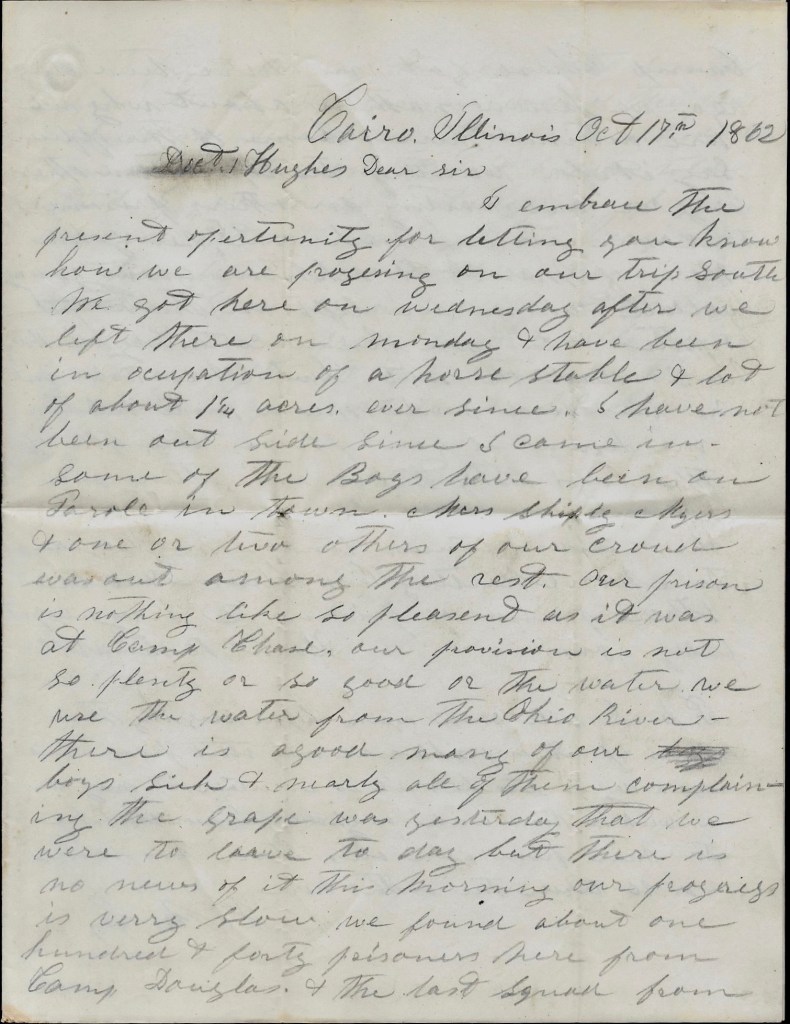 Cairo. Illinois Oct 17th 1862
Doct. Hughes Dear sir
I embrace the
present opertunity for letting you know
how we are progresing on our trip South
We got here on wednesday after we
left there on monday & have been
in ocupation of a horse stable & lot
of about 1¼ acres. ever since. I have not
been out side since I came in-
some of the Boys have been on
Parole in town. Mers Shiply Myers
& one or two others of our croud
was out among the rest. our prison
is nothing like so pleasent as it was
at Camp Chase, our provision is not
so plenty or so good or the water we
use the water from the Ohio River-
there is a good many of our
boys sick & nearly all of them complain-
ing the grape was yesterday that we
were to leave to day but there is
no news of it this morning our progriess
is verry slow we found about one
hundred & forty prisoners here from
Camp Douglas. & the last squad from